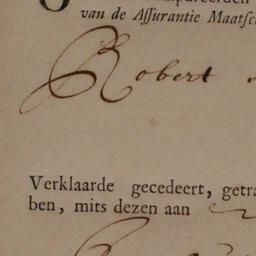 van de Assurantie Maatsc
Robert
Verklaarde gecedeert, getra
ben, mits dezen aan